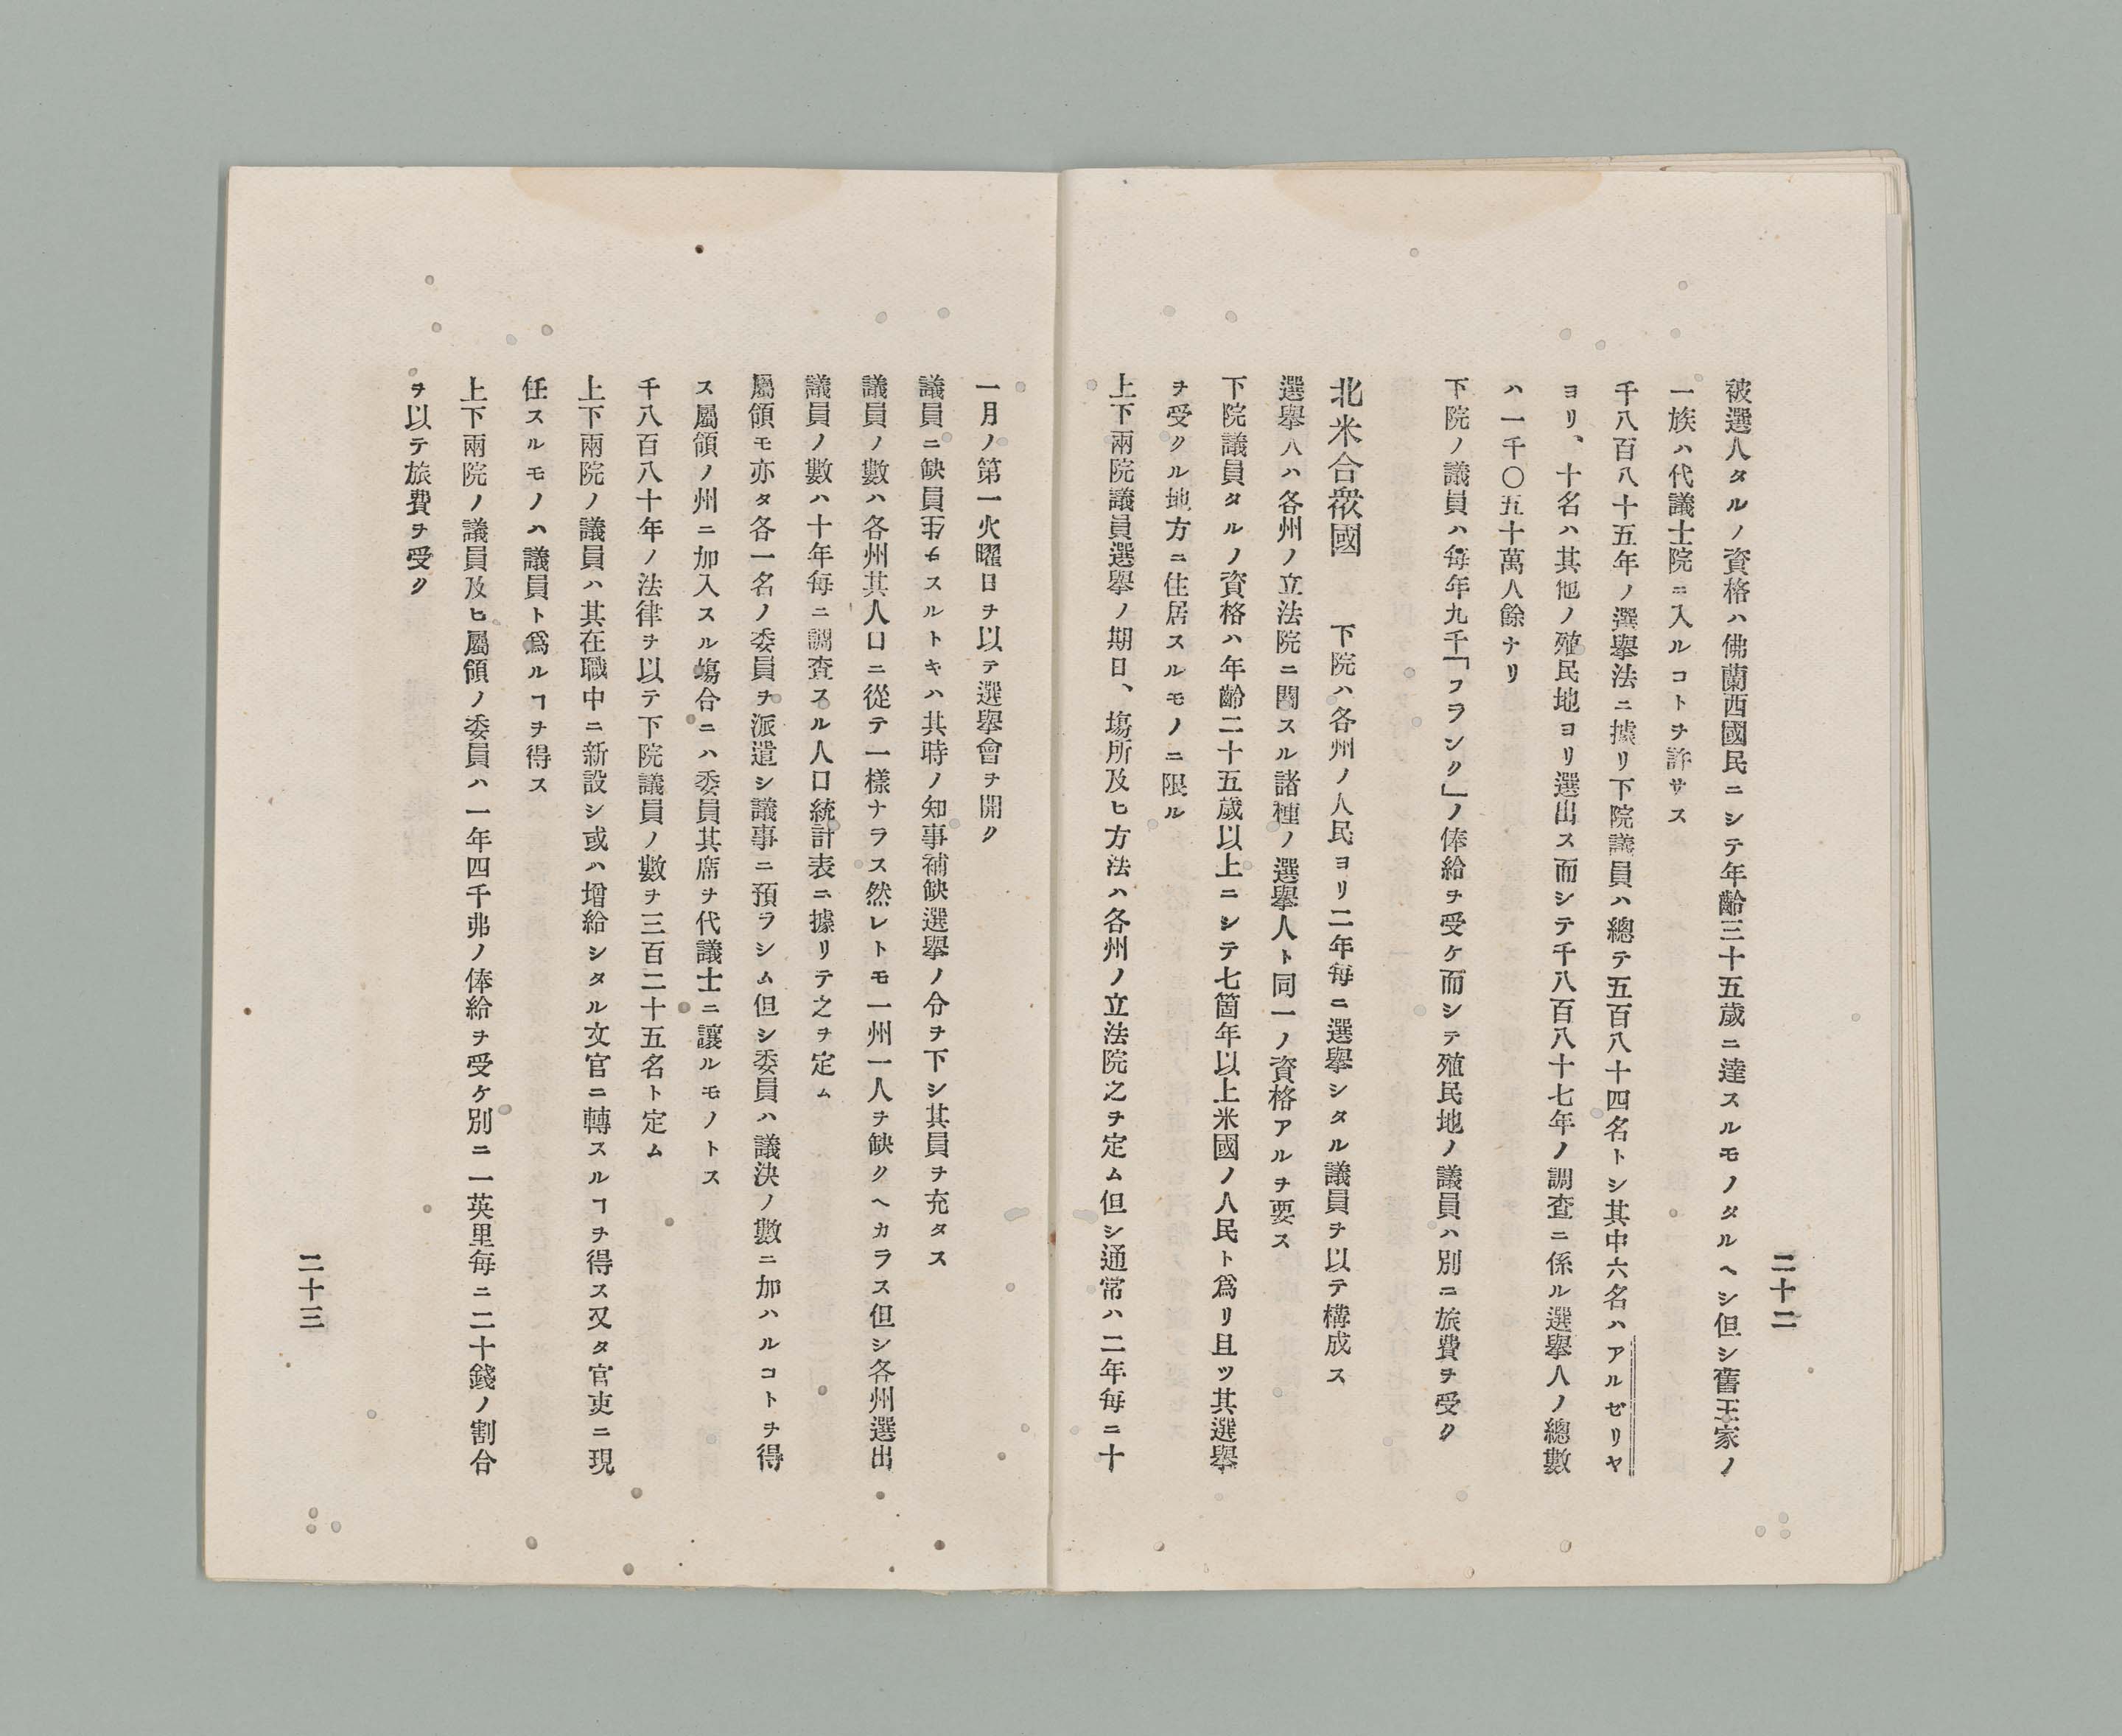 被選人タルノ資格ハ佛蘭西國民ニシテ年齡三十五歲ニ達スルモノタルヘシ但シ舊王家ノ
一族ハ代議士院ニ入ルコトヲ許サス
千八百八十五年ノ選擧法ニ據リ下院議員ハ總テ五百八十四名トシ其中六名ハアルゼリヤ
ヨリ、十名ハ其他ノ殖民地ヨリ選出ス而シテ千八百八十七年ノ調査ニ係ル選擧人ノ總數
ハ一千〇五十萬人餘ナリ
下院ノ議員ハ每年九千「フランク」ノ俸給ヲ受ケ而シテ殖民地ノ議員ハ別ニ旅費ヲ受ク
北米合衆國 下院ハ各州ノ人民ヨリ二年每ニ選擧シタル議員ヲ以テ構成ス
選擧人ハ各州ノ立法院ニ關スル諸種ノ選擧人ト同一ノ資格アルヲ要ス
下院議員タルノ資格ハ年齡二十五歲以上ニシテ七箇年以上米國ノ人民ト爲リ且ツ其選擧
ヲ受クル地方ニ住居スルモノニ限ル
上下兩院議員選擧ノ期日、塲所及ヒ方法ハ各州ノ立法院之ヲ定ム但シ通常ハ二年每ニ十
二十二
一月ノ第一火曜日ヲ以テ選擧會ヲ開ク
議員ニ缺員スルトキハ其時ノ知事補缺選擧ノ令ヲ下シ其員ヲ充タス
議員ノ數ハ各州其人口ニ從テ一樣ナラス然レトモ一州一人ヲ缺クヘカラス但シ各州選出
議員ノ數ハ十年每ニ調査スル人口統計表ニ據リテ之ヲ定ム
屬領モ亦タ各一名ノ委員ヲ派遣シ議事ニ預ラシム但シ委員ハ議決ノ數ニ加ハルコトヲ得
ス屬領ノ州ニ加入スル塲合ニハ委員其席ヲ代議士ニ讓ルモノトス
千八百八十年ノ法律ヲ以テ下院議員ノ數ヲ三百二十五名ト定ム
上下兩院ノ議員ハ其在職中ニ新設シ或ハ增給シタル文官ニ轉スルヿヲ得ス又タ官吏ニ現
任スルモノハ議員ト爲ルヿヲ得ス
上下兩院ノ議員及ヒ屬領ノ委員ハ一年四千弗ノ俸給ヲ受ケ別ニ一英里每ニ二十錢ノ割合
ヲ以テ旅費ヲ受ク
二十三